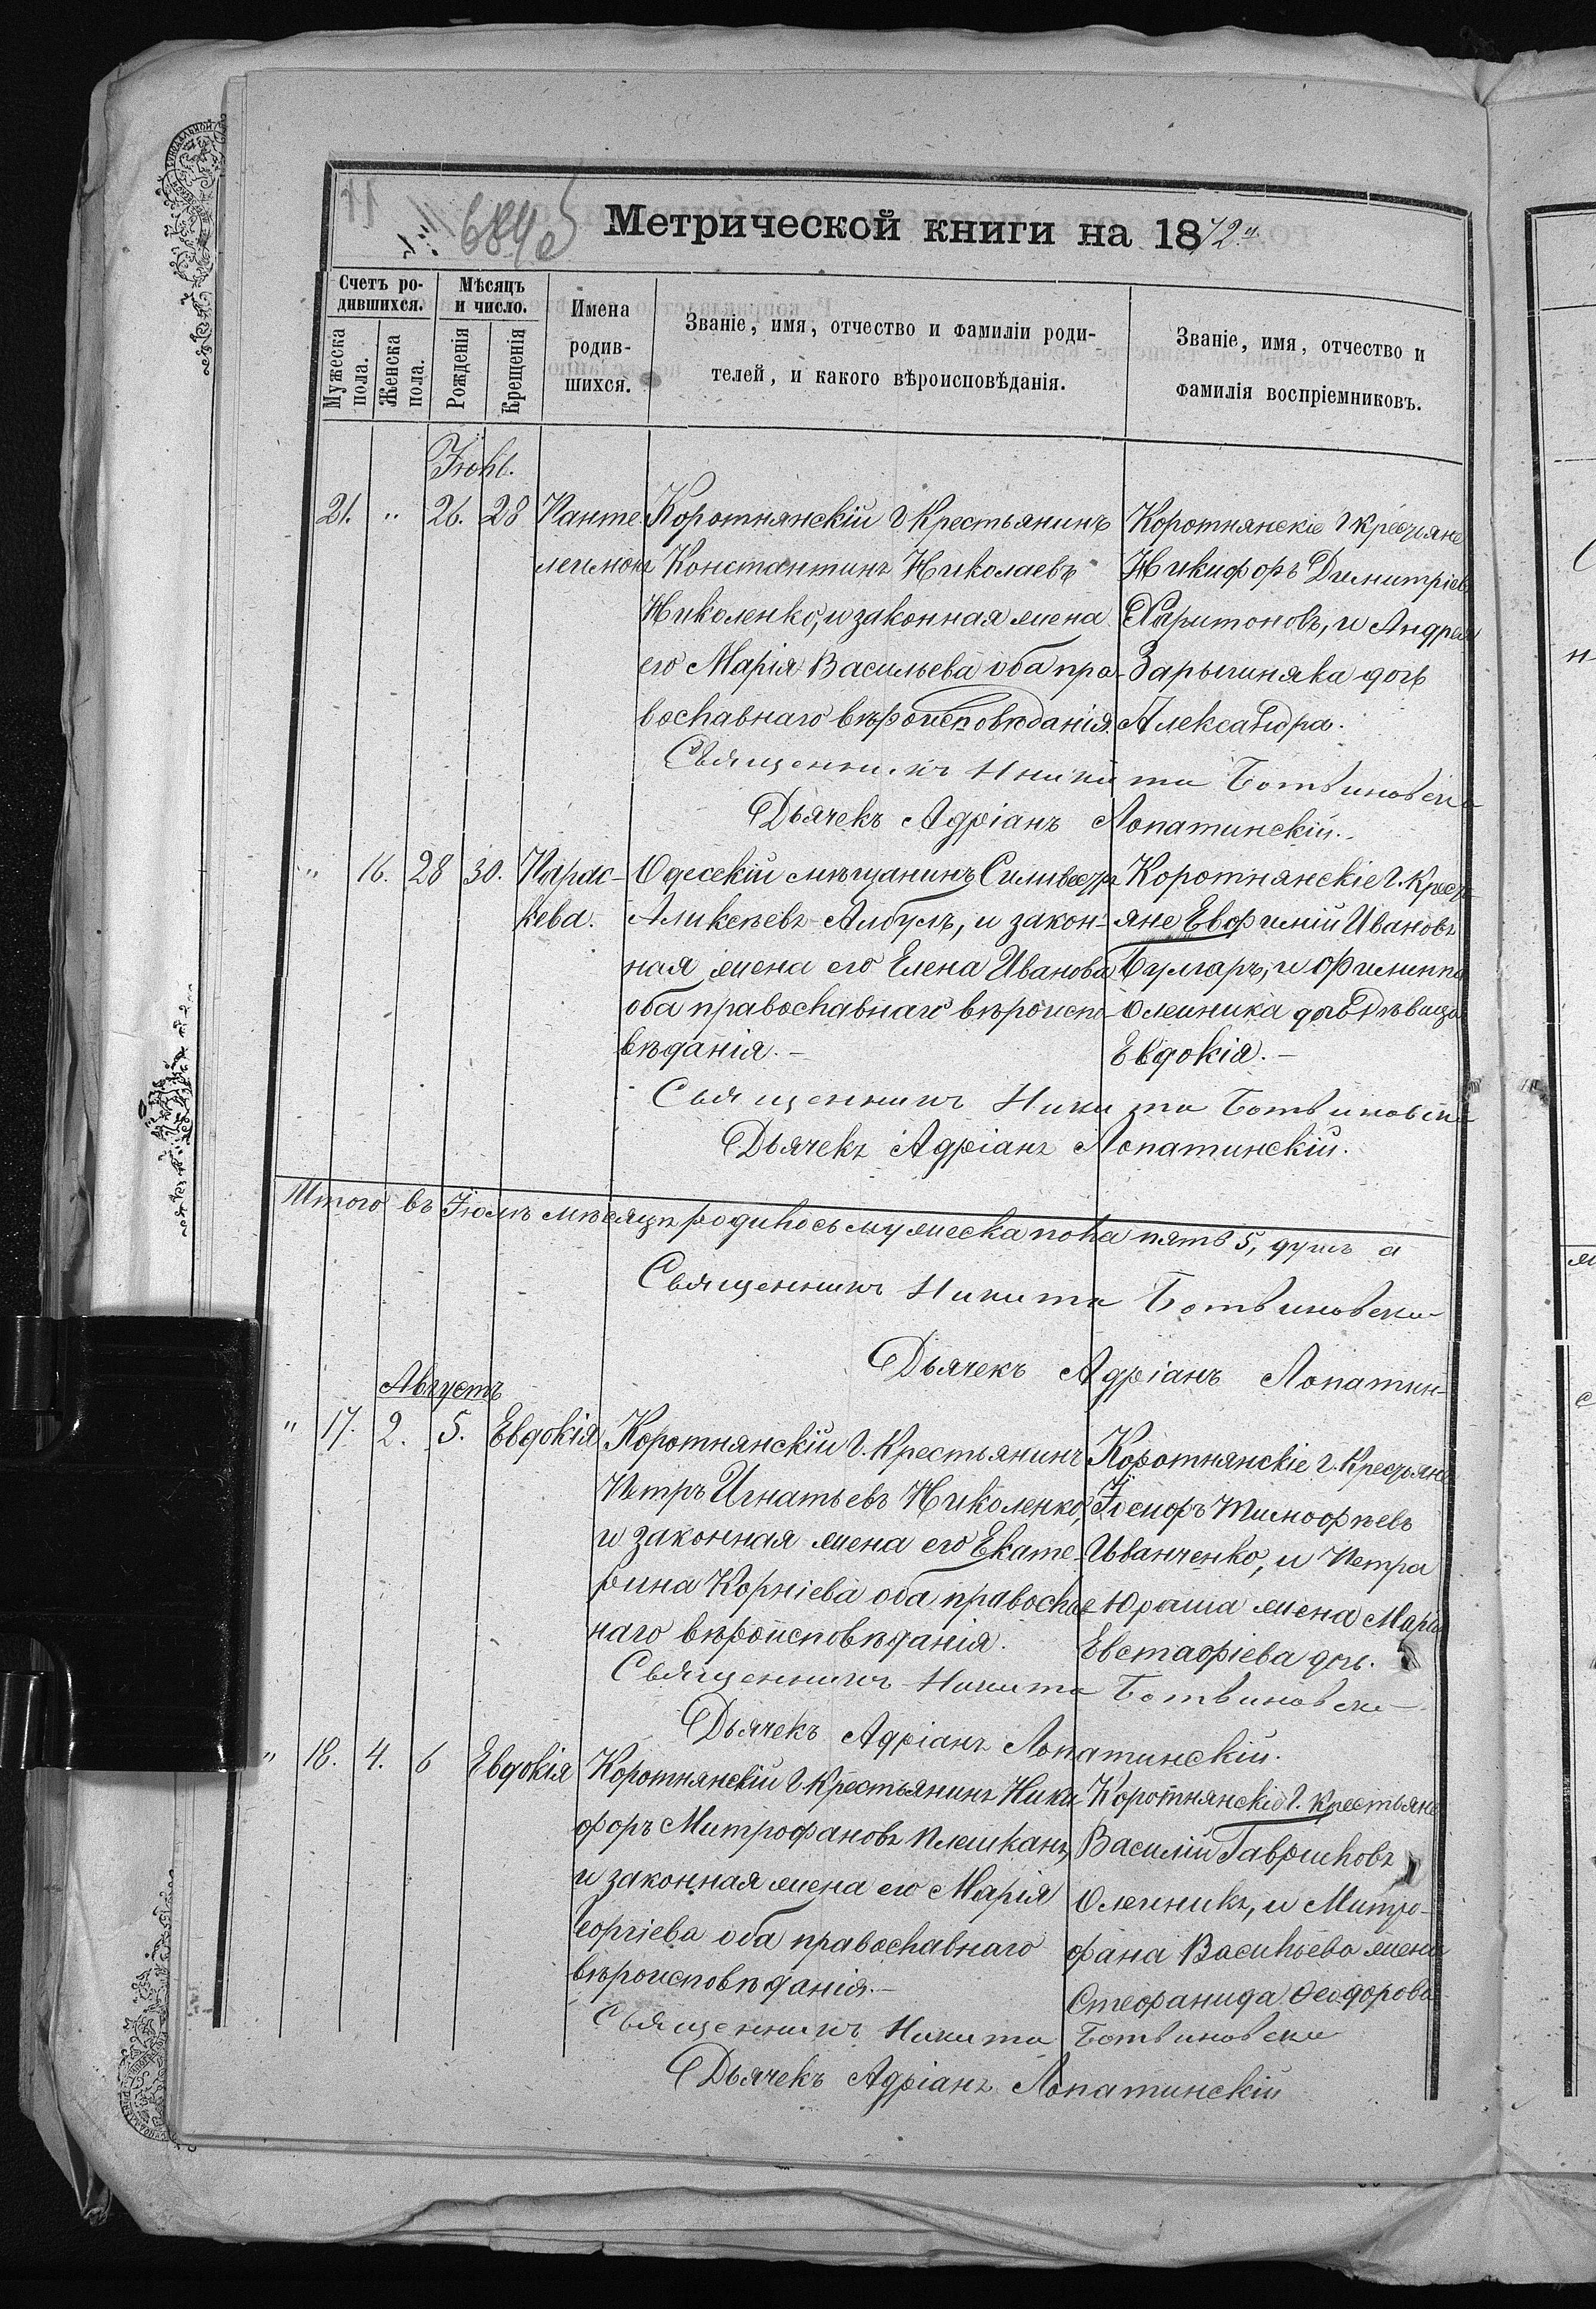 6845
Метрической книги на 1872.
Счетъ родившихся.
Мѣсяцъ и число.
Имена родившихся.
Званіе, имя, отчество и фамиліи родителей, и какого вѣроисповѣданія.
Званіе, имя, отчество и фамилія воспріемниковъ.
Мужеска пола.
Женска пола.
Рожденія
Крещенія
Іюль.
21. " 26. 28 Панте-
леимонъ
Коротнянскій Крестьянинъ
Константинъ Николаевъ
Николенко, и законная жена
его Марія Васильева оба пра-
вославнаго вѣроисповѣданія.
Коротнянскіе крестьяне
Никифоръ Димитріевъ
Харитоновъ, и Андрея
дочь
Александра.
Священникъ Никита Ботвиновскій
Дьячекъ Адріанъ Лопатинскій.
" 16. 28 30. Парас-
кева.
Одесскій мѣщанинъ Сильвестръ
Аликсѣевъ Албулъ, и закон-
ная жена его Елена Иванова
оба православнаго вѣроиспо-
вѣданія.-
Коротнянскіе Г. Крест-
яне Евфимій Ивановъ
Булгаръ, и Филиппа
Олейника дочь дѣвица
Евдокія.-
Священникъ Никита Ботвиновскій
Дьячекъ Адріанъ Лопатинскій.
Итого въ Іюлѣ мѣсяцѣ родилось мужеска пола пять 5, душъ а
Священникъ Никита Ботвиновскій
Дьячекъ Адріанъ Лопатин-
Августъ
" 17. 2. 5. Евдокія
Коротнянскій Г. Крестьянинъ
Петръ Игнатьевъ Николенко,
и законная жена его Екате-
рина Корніева оба православ-
наго вѣроисповѣданія.
Коротнянскіе Г. Крестьяне
Іосифъ Тимофѣевъ
Иванченко, и Петра
Юраша жена Марія
Евстафіева дочь.
Священникъ Никита Ботвиновскій
Дьячекъ Адріанъ Лопатинскій.
" 18. 4. 6 Евдокія
Коротнянскій Г. Крестьянинъ Ники-
форъ Митрофановъ Плешканъ,
и законная жена его Марія
Георгіева оба православнаго
вѣроисповѣданія.-
Коротнянскіе Г. Крестьяне
Василій Гавриловъ
Олейникъ, и Митро-
фана Васильева жена
Стефанида Феодорова
Священникъ Никита Ботвиновскій
Дьячекъ Адріанъ Лопатинскій